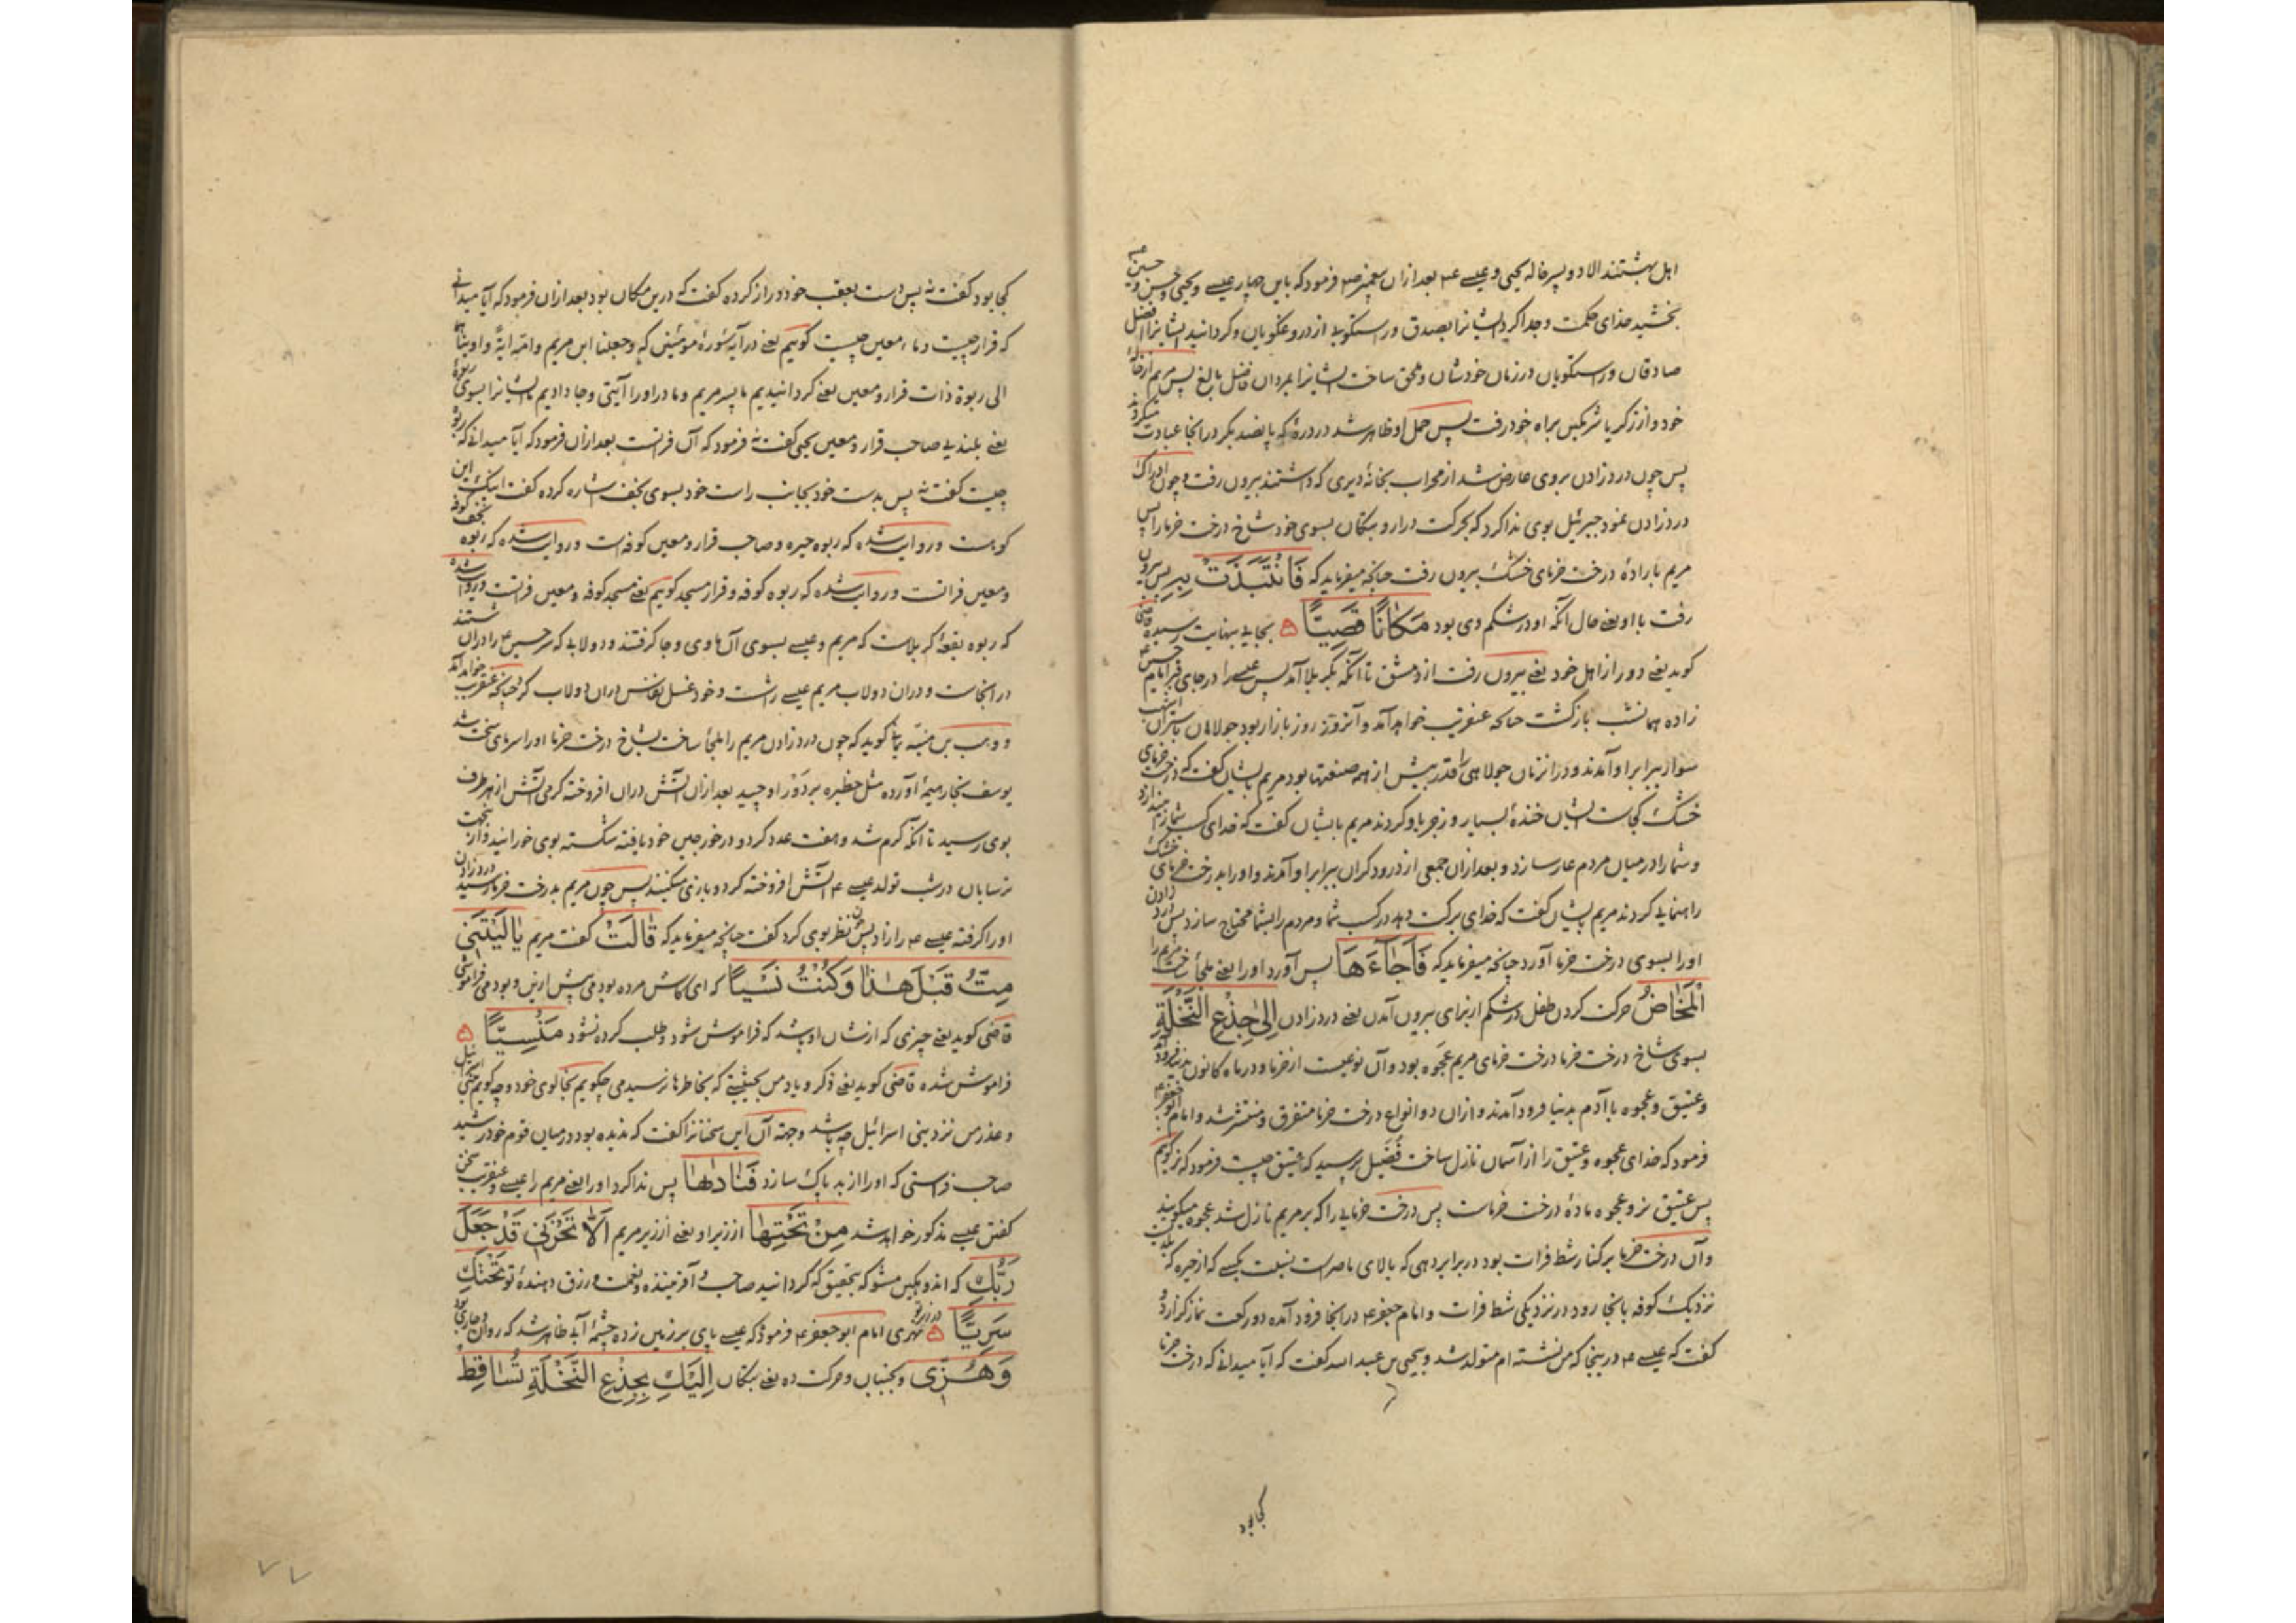 اهل بهشتند الا دو پسر خاله یحیی و عیسی ع م بعد ازان پیغمبر ص م فرمود که باین چهار عیسی و یحیی و حسن و حسین
بخشید خدای حکمت و جدا کرد ایشانرا بصدق و راستگویی از دروغگویان و گردانید ایشانرا افضل
صادقان و راستگویان در زمان خودشان و ملحق ساخت ایشانرا بمردان فاضل بالغ پس مریم از خانه
خود و از زکریا شرمگین براه خود رفت پس حمل او ظاهر شد در دره که پانصد بکر درانجا عبادت میکردند
پس چون درد زادن بروی عارض شد از محراب بخانه دیری که داشتند بیرون رفت و چون ادراک
درد زادن نمود جبرئیل بوی ندا کرد که بحرکت درار و بتکان بسوی خود شاخ درخت خرما را پس
مریم باراده درخت خرمای خشک بیرون رفت چنانچه میفرماید که فَانْتَبَذَتْ بِهِ پس بیرون
رفت با او یعنی حال آنکه او در شکم وی بود مَكَانًا قَصِيًّا بجایی بنهایت رسیده قاضی
کوید یعنی دور از اهل خود یعنی بیرون رفت از دمشق تا آنکه بکربلا آمد پس عیسی را در جای قبر امام حسین ع م
زاده همانشب بازگشت چنانکه عنقریب خواهد آمد و آنروز روز بازار بود جولاهان باستران اشهب
سوار ببرابر او آمدند و درانزمان جولاهی را قدر بیش از همه صنعتها بود مریم بایشان گفت که درخت خرمای
خشک کجاست ایشان خنده بسیار و زجر باو کردند مریم بایشان گفت که خدای کسب شما را
و شما را در میان مردم عار سازد و بعد ازان جمعی از درودگران ببرابر او آمدند و او را بدرخت خرمای خشک
راهنمایی کردند مریم بایشان گفت که خدای برکت دهد در کسب شما و مردم را بشما محتاج سازد پس درد زادن
او را بسوی درخت خرما آورد چنانچه میفرماید که فَاَجَاءَهَا پس آورد او را یعنی ملجأ ساخت مریم را
الْمَخَاضُ حرکت کردن طفل در شکم از برای بیرون آمدن یعنی درد زادن اِلٰى جِذْعِ النَّخْلَةِ
بسوی شاخ درخت خرما درخت خرمای مریم عجوه بود و آن نوعیست از خرما و در ماه کانون
و عتیق و عجوه با آدم بدنیا فرود آمدند و ازان دو انواع درخت خرما متفرق و منتشر شد و امام ابو جعفر ع م
فرمود که خدای عجوه و عتیق را از آسمان نازل ساخت فضیل پرسید که عتیق چیست فرمود که نر کوئیم
پس عتیق نر و عجوه ماده درخت خرماست پس درخت خرمایی را که بر مریم نازل شد عجوه میگویند
و آن درخت خرما بر کنار شط فرات بود در برابر دهی که بالای ناصرات نسبت بکسی که از حیره که
نزدیک کوفه بانجا رود در نزدیکی شط فرات و امام جعفر ع م درانجا فرود آمده دو رکعت نماز گزارد و
گفت که عیسی ع م درینجا که من نشسته ام متولد شد و یحیی بن عبد الله گفت که آیا میدانی که درخت خرما
کجا بود
کجا بود گفت نه پس دست بعقب خود دراز کرده گفت که درین مکان بود بعد ازان فرمود که آیا میدانی
که قرار چیست و ماء معین چیست کوئیم یعنی در آیه سوره مؤمنین که وجعلنا ابن مریم وامه آیة وآویناهما
الی ربوة ذات قرار ومعین یعنی گردانیدیم ما پسر مریم و مادر او را آیتی و جا دادیم ما ایشانرا بسوی ربوه
یعنی بلندیی صاحب قرار و معین یحیی گفت نه فرمود که آن فراتست بعد ازان فرمود که آیا میدانی که ربوه
چیست گفت نه پس بدست خود بجانب راست خود بسوی نجف اشاره کرده گفت اینک این
کوهست و روایت شده که ربوه حیره و صاحب قرار و معین کوفه است و روایت شده که ربوه نجف کوفه
و معین فراتست و روایت شده که ربوه کوفه و قرار مسجد کوئیم یعنی مسجد کوفه و معین فراتست و روایت شده
که ربوه بقعه کربلاست که مریم و عیسی بسوی آن ماوی و جا گرفتند و دولابی که سر حسین ع م را دران شستند
درانجاست و دران دولاب مریم عیسی را شست و خود غسل نفاس دران دولاب کرد چنانچه عنقریب خواهد آمد
و وهب بن منبه یمانی گوید که چون درد زادن مریم را ملجأ ساخت بشاخ درخت خرما او را سرمای سخت شد
یوسف نجار هیمه آورده مثل حظیره بر دور او چید بعد ازان آتش دران افروخته گرمی آتش از هر طرف
بوی رسید تا آنکه گرم شد و هفت عدد گردو در خورجین خود یافته شکسته بوی خورانید و ازینجهت
ترسایان در شب تولد عیسی ع م آتش افروخته گردو بازی میکنند پس چون مریم بدرخت خرما رسید درد زادن
او را گرفته عیسی ع م را زاد پس چون نظر بوی کرد گفت چنانچه میفرماید که قَالَتْ گفت مریم يَا لَيْتَنِي
مِتُّ قَبْلَ هٰذَا وَكُنْتُ نَسْيًا که ای کاش مرده بودمی پیش ازین و بودمی فراموشی
قاضی کوید یعنی چیزی که از شان او باشد که فراموش شود و طلب کرده نشود مَنْسِيًّا
فراموش شده قاضی کوید یعنی ذکر و یاد من بحیثیتی که بخاطرها نرسیدمی چکویم بخالوی خود و چه کویم ببنی اسرائیل
و عذر من نزد بنی اسرائیل چه باشد وجهة آن این سخنانرا گفت که ندیده بود در میان قوم خود رشید
صاحب فراستی که او را از بد پاک سازد فَنَادٰهَا پس ندا کرد او را یعنی مریم را عیسی و عنقریب سخن
گفتن عیسی مذکور خواهد شد مِنْ تَحْتِهَا از زیر او یعنی از زیر مریم اَلَّا تَحْزَنِي قَدْ جَعَلَ
رَبُّكِ که اندوهگین مشو که بتحقیق که گردانید صاحب و آفریننده و نعمت و رزق دهنده تو تَحْتَكِ
سَرِيًّا در زیر تو نهری امام ابو جعفر ع م فرمود که عیسی پای بر زمین زده چشمه آبی ظاهر شد که روان و جاری بود
وَهُزِّي و بجنبان و حرکت ده یعنی بتکان اِلَيْكِ بِجِذْعِ النَّخْلَةِ تُسَاقِطْ
۷۷